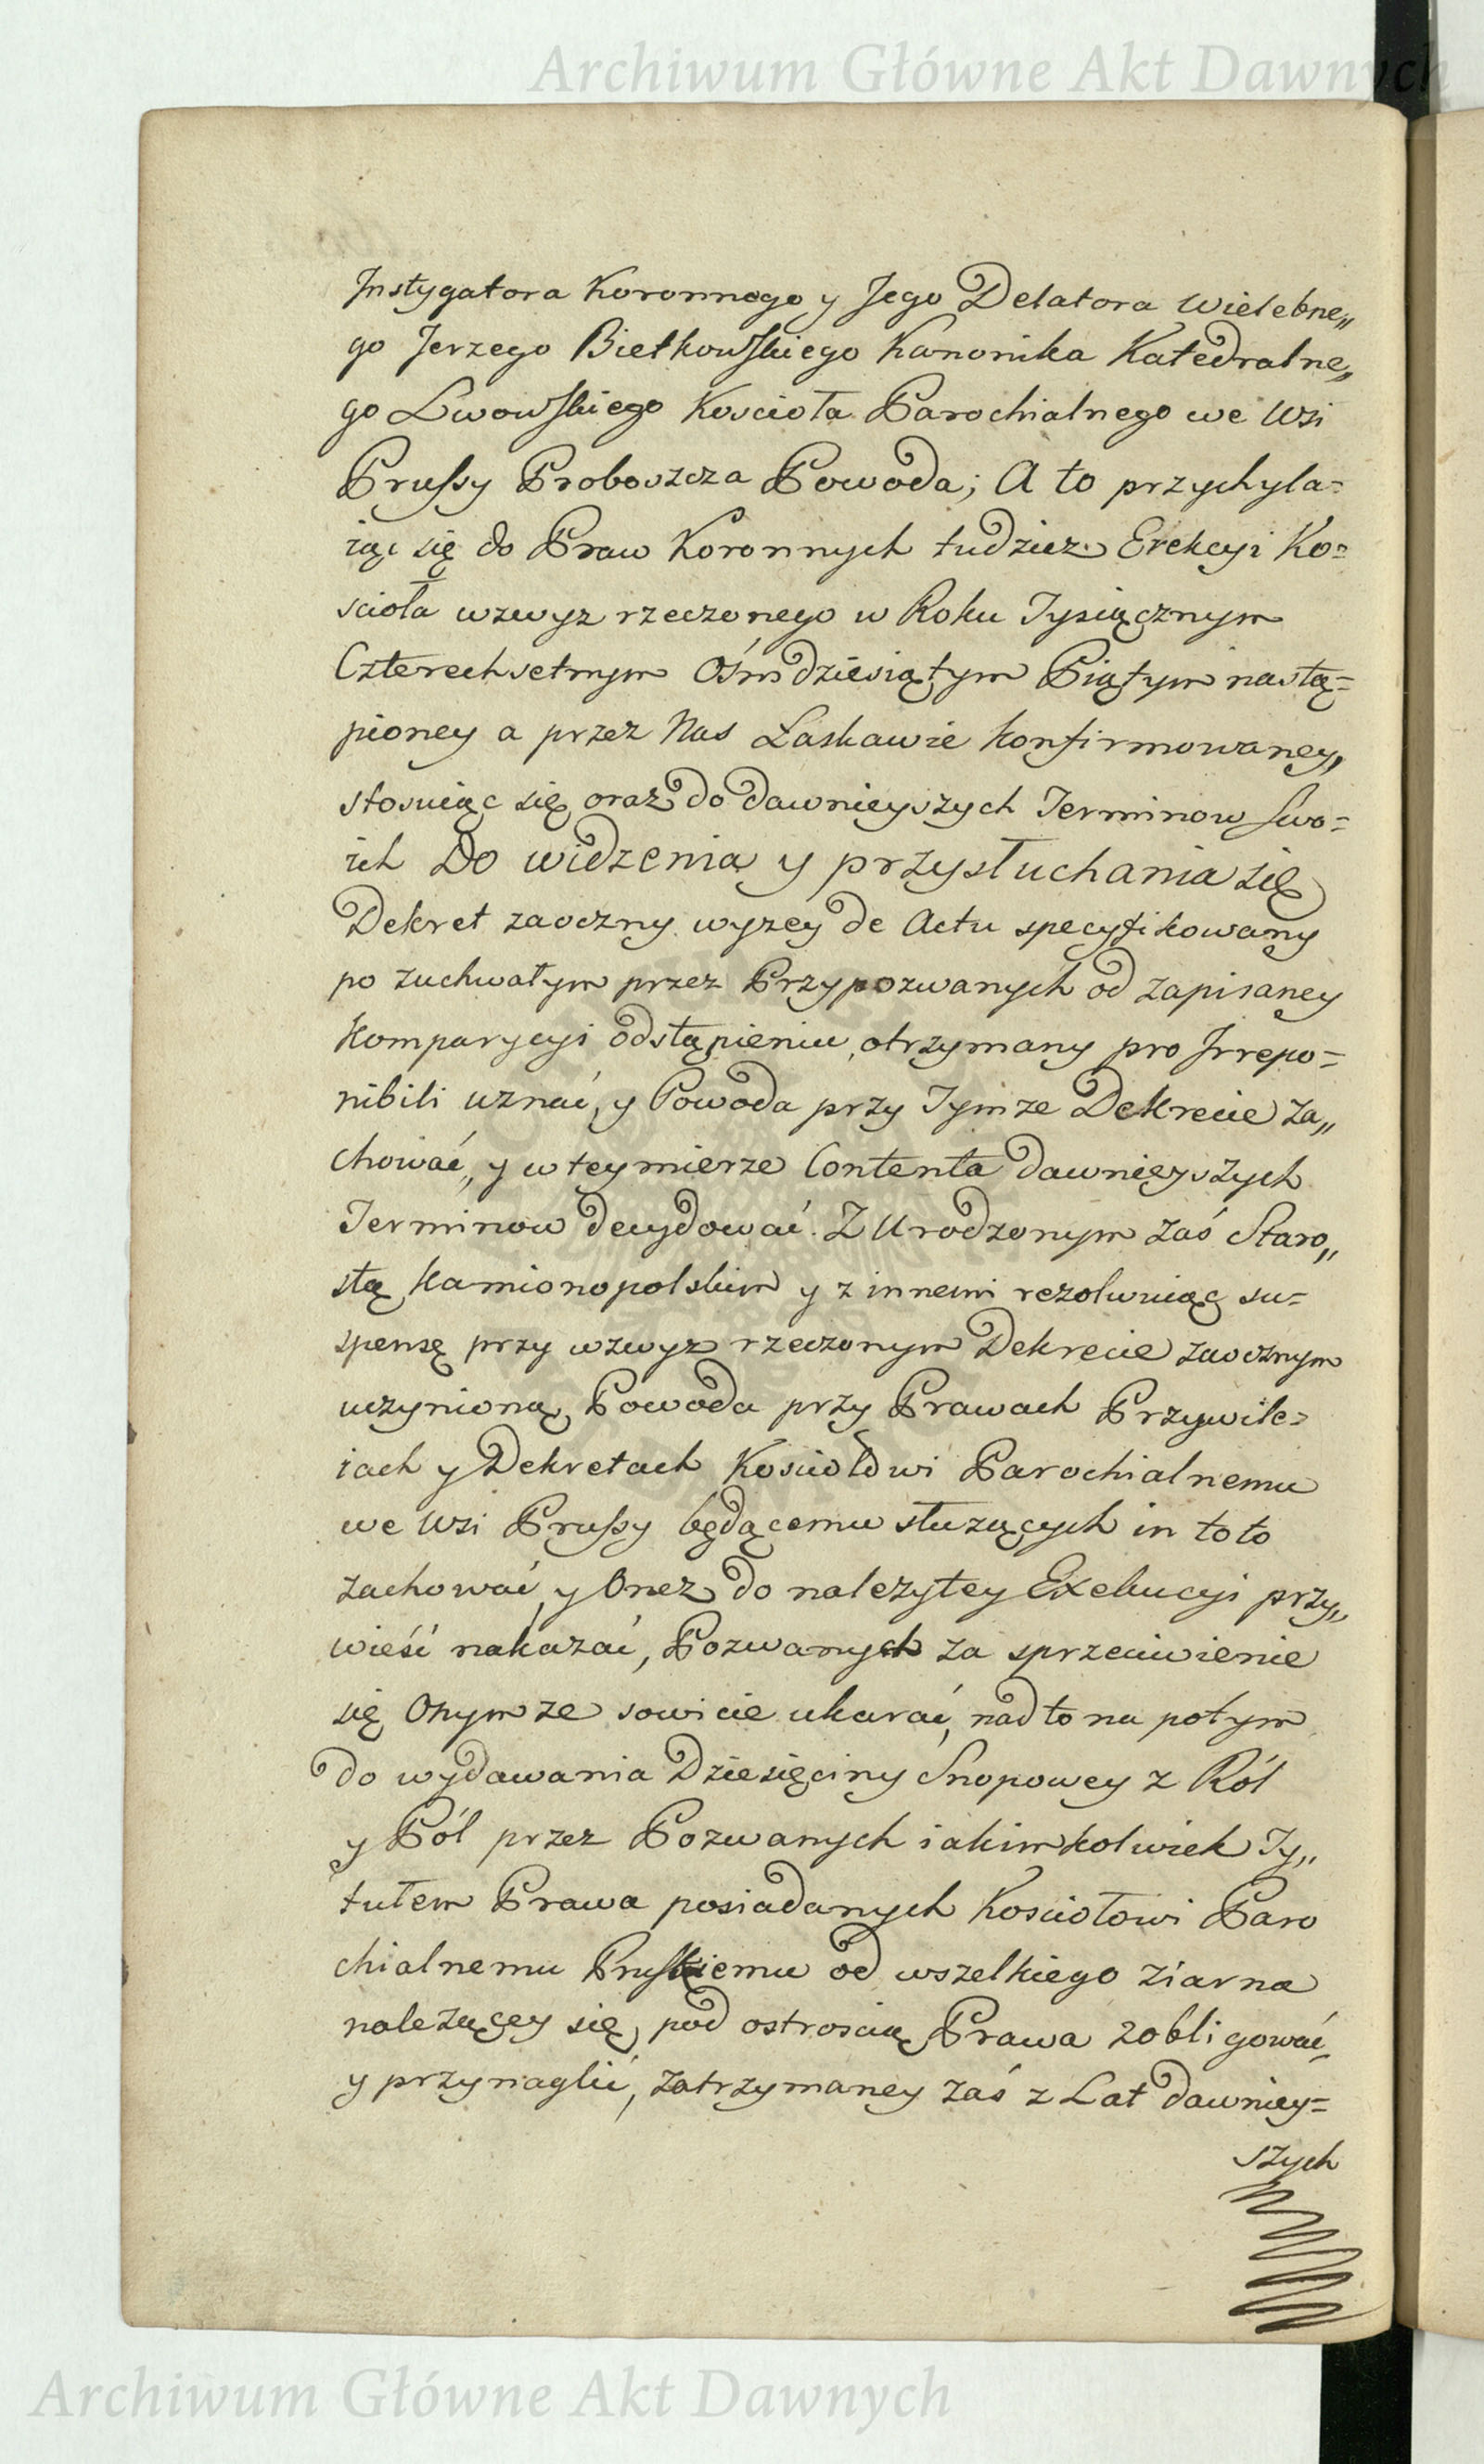 Archiwum Główne Akt Dawnych
Instygatora Koronnego y Jego Delatora Wielebne„
go Jerzego Bietkowskiego Kanonika Katedralne„
go Lwowskiego Koscioła Parochialnego we Wsi
Prussy Proboszcza Powoda; A to przychyla=
iąc się do Praw Koronnych tudziez Erekcyi Ko=
scioła wzwyz rzeczonego w Roku Tysiącznym
Czterechsetnym Ośmdziesiątym Piątym nastą=
pioney a przez Nas Łaskawie konfirmowaney,
stosuiąc się oraz do dawnieyszych Terminow Swo=
ich Do widzenia y przysłuchania się
Dekret zaoczny wyzey de Actu specyfikowany
po zuchwałym przez Przypozwanych od zapisaney
Komparycyi odstąpieniu, otrzymany pro Irrepo=
nibili uznać, y Powoda przy Tymze Dekrecie za„
chować, y w tey mierze Contenta dawnieyszych
Terminow decydować. Z Urodzonym zaś Staro„
stą Kamionopolskim y z innemi rezolwuiąc su=
spensę przy wzwyz rzeczonym Dekrecie zaocznym
uczynioną, Powoda przy Prawach Przywile=
iach y Dekretach Kosciołowi Parochialnemu
we Wsi Prussy będącemu słuzących in toto
zachować, y Onez do nalezytey Exekucyi przy„
wieść nakazać, Pozwanych za sprzeciwienie
się Onymze sowicie ukarać, nadto na potym
do wydawania Dziesięciny Snopowey z Ról
y Pól przez Pozwanych iakimkolwiek Ty„
tułem Prawa posiadanych Kosciołowi Paro
chialnemu Pruskiemu od wszelkiego ziarna
nalezącey się, pod ostroscią Prawa zobligować,
y przynaglić, zatrzymaney zaś z Lat dawniey=
szych
Archiwum Główne Akt Dawnych